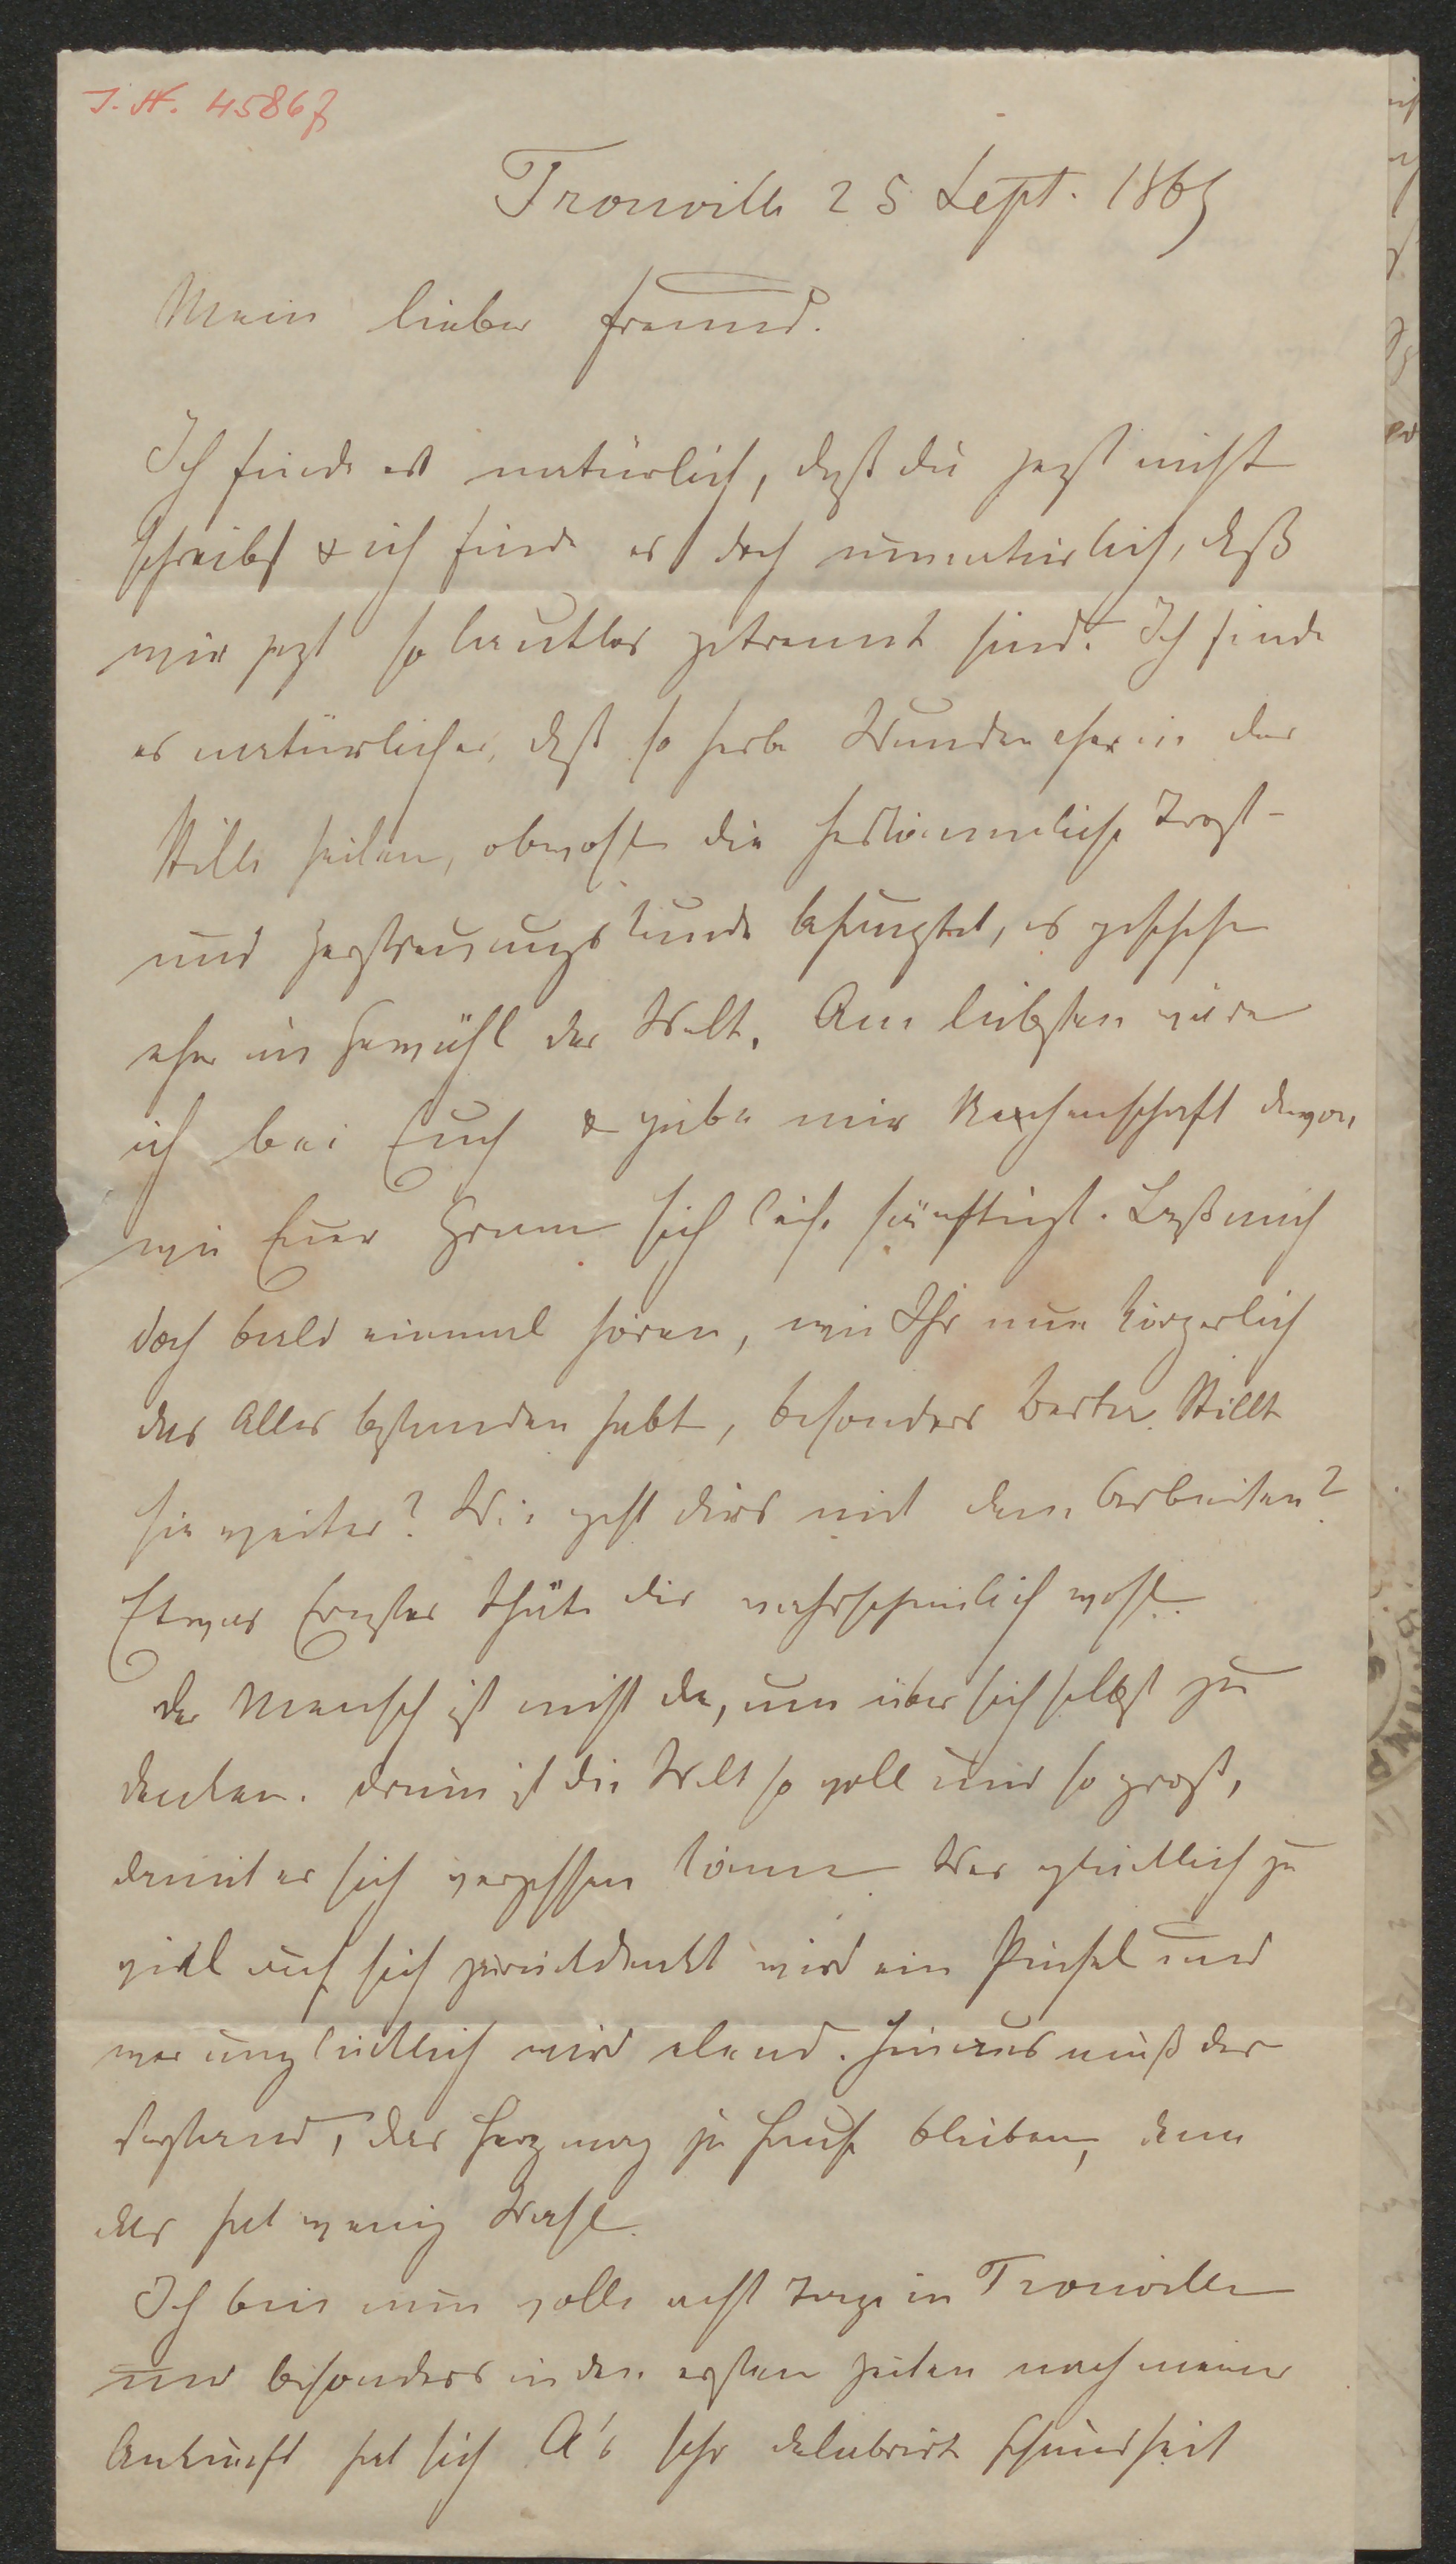 I. N. 45867
Trouville 25 Sept. 1865
Mein lieber Freund.
Ich finde es natürlich, daß du jezt nicht
schreibst & ich finde es doch unnatürlich, daß
wir jezt so lautlos getrennt sind. Ich finde
es natürlicher, daß so herbe Wunden eher in der
Stille heilen, obwohl die herkömmliche Trost-
und Zerstreuungskunde behauptet, es geschehe
eher im Gewühl der Welt. Am liebsten wäre
ich bei Euch & gäbe mir Rechenschaft davon,
wie Euer Gram sich leise sänftigt. Laß mich
doch bald einmal hören, wie Ihr nun körperlich
das Alles bestanden habt, besonders Berta. Stillt
sie weiter? Wie geht dirs mit dem Arbeiten?
Etwas Ernstes thäte dir wahrscheinlich wohl.
Der Mensch ist nicht da, um über sich selbst zu
denken. Drum ist die Welt so voll und so groß,
damit er sich vergessen könne. Wer glücklich zu
viel auf sich zurückdenkt wird ein Pinsel und
wer unglücklich wird elend. Hinaus muß der
Verstand, das Herz mag zu Hause bleiben, denn
das hat wenig Wahl.
Ich bin nun volle acht Tage in Trouville
und besonders in den ersten Zeiten nach meiner
Ankunft hat sich A's sehr delabrirte Gesundheit